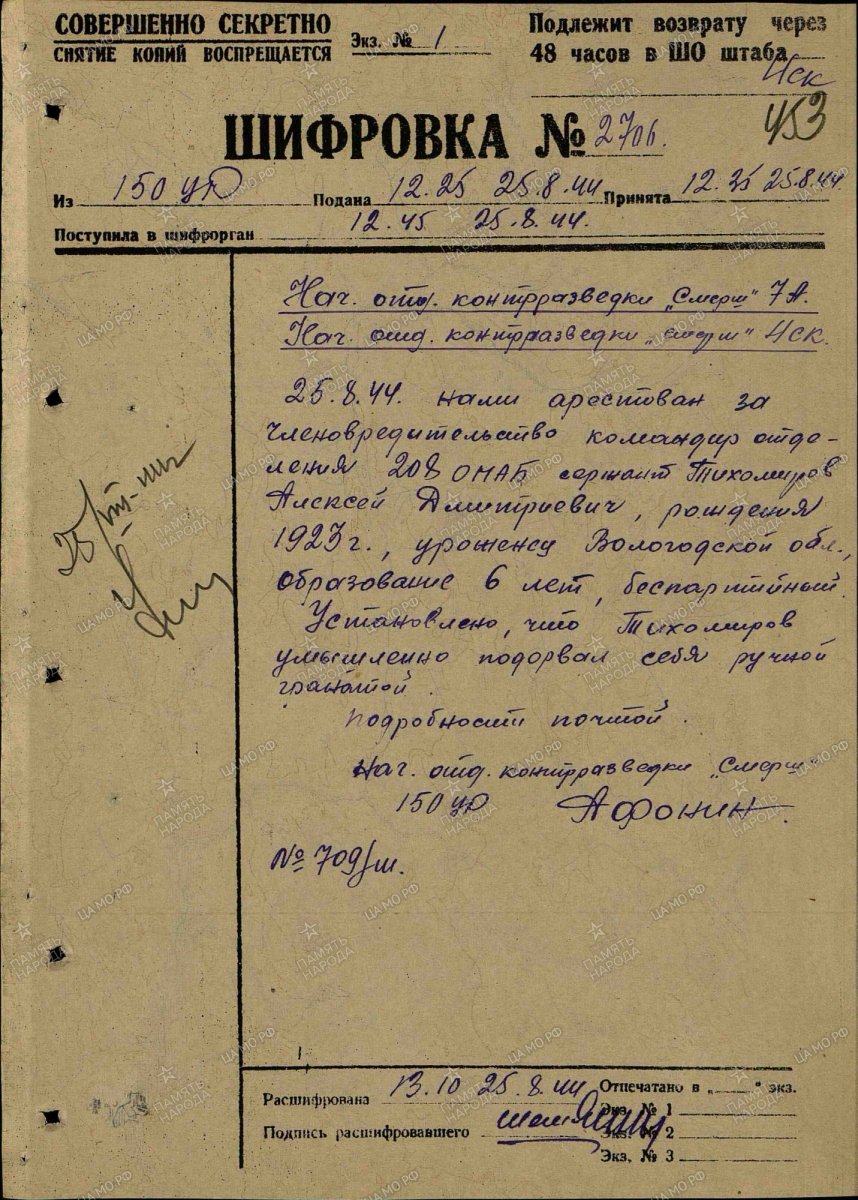 СОВЕРШЕННО СЕКРЕТНО
СНЯТИЕ КОПИЙ ВОСПРЕЩАЕТСЯ
Экз. № 1
Подлежит возврату через
48 часов в ШО штаба
4ск
453
ШИФРОВКА № 2706.
Из 150 УР Подана 12.25 25.8.44 Принята 12.35 25.8.44.
Поступила в шифрорган 12.45 25.8.44.
Нач. отд. контрразведки „Смерш" 7А.
Нач. отд. контрразведки „Смерш" 4ск.
25.8.44. нами арестован за
членовредительство командир отде-
ления 208 ОМАБ сержант Тихомиров
Алексей Дмитриевич, рождения
1923 г., уроженец Вологодской обл.,
образование 6 лет, беспартийный.
Установлено, что Тихомиров
умышленно подорвал себя ручной
гранатой.
Подробности почтой.
Нач. отд. контрразведки „Смерш"
150 УР Афонин.
№ 709/ш.
Расшифрована 13.10 25.8.44
Подпись расшифровавшего
Отпечатано в „ " экз.
Экз. № 1
Экз. № 2
Экз. № 3
ПАМЯТЬ НАРОДА
ЦАМО.РФ